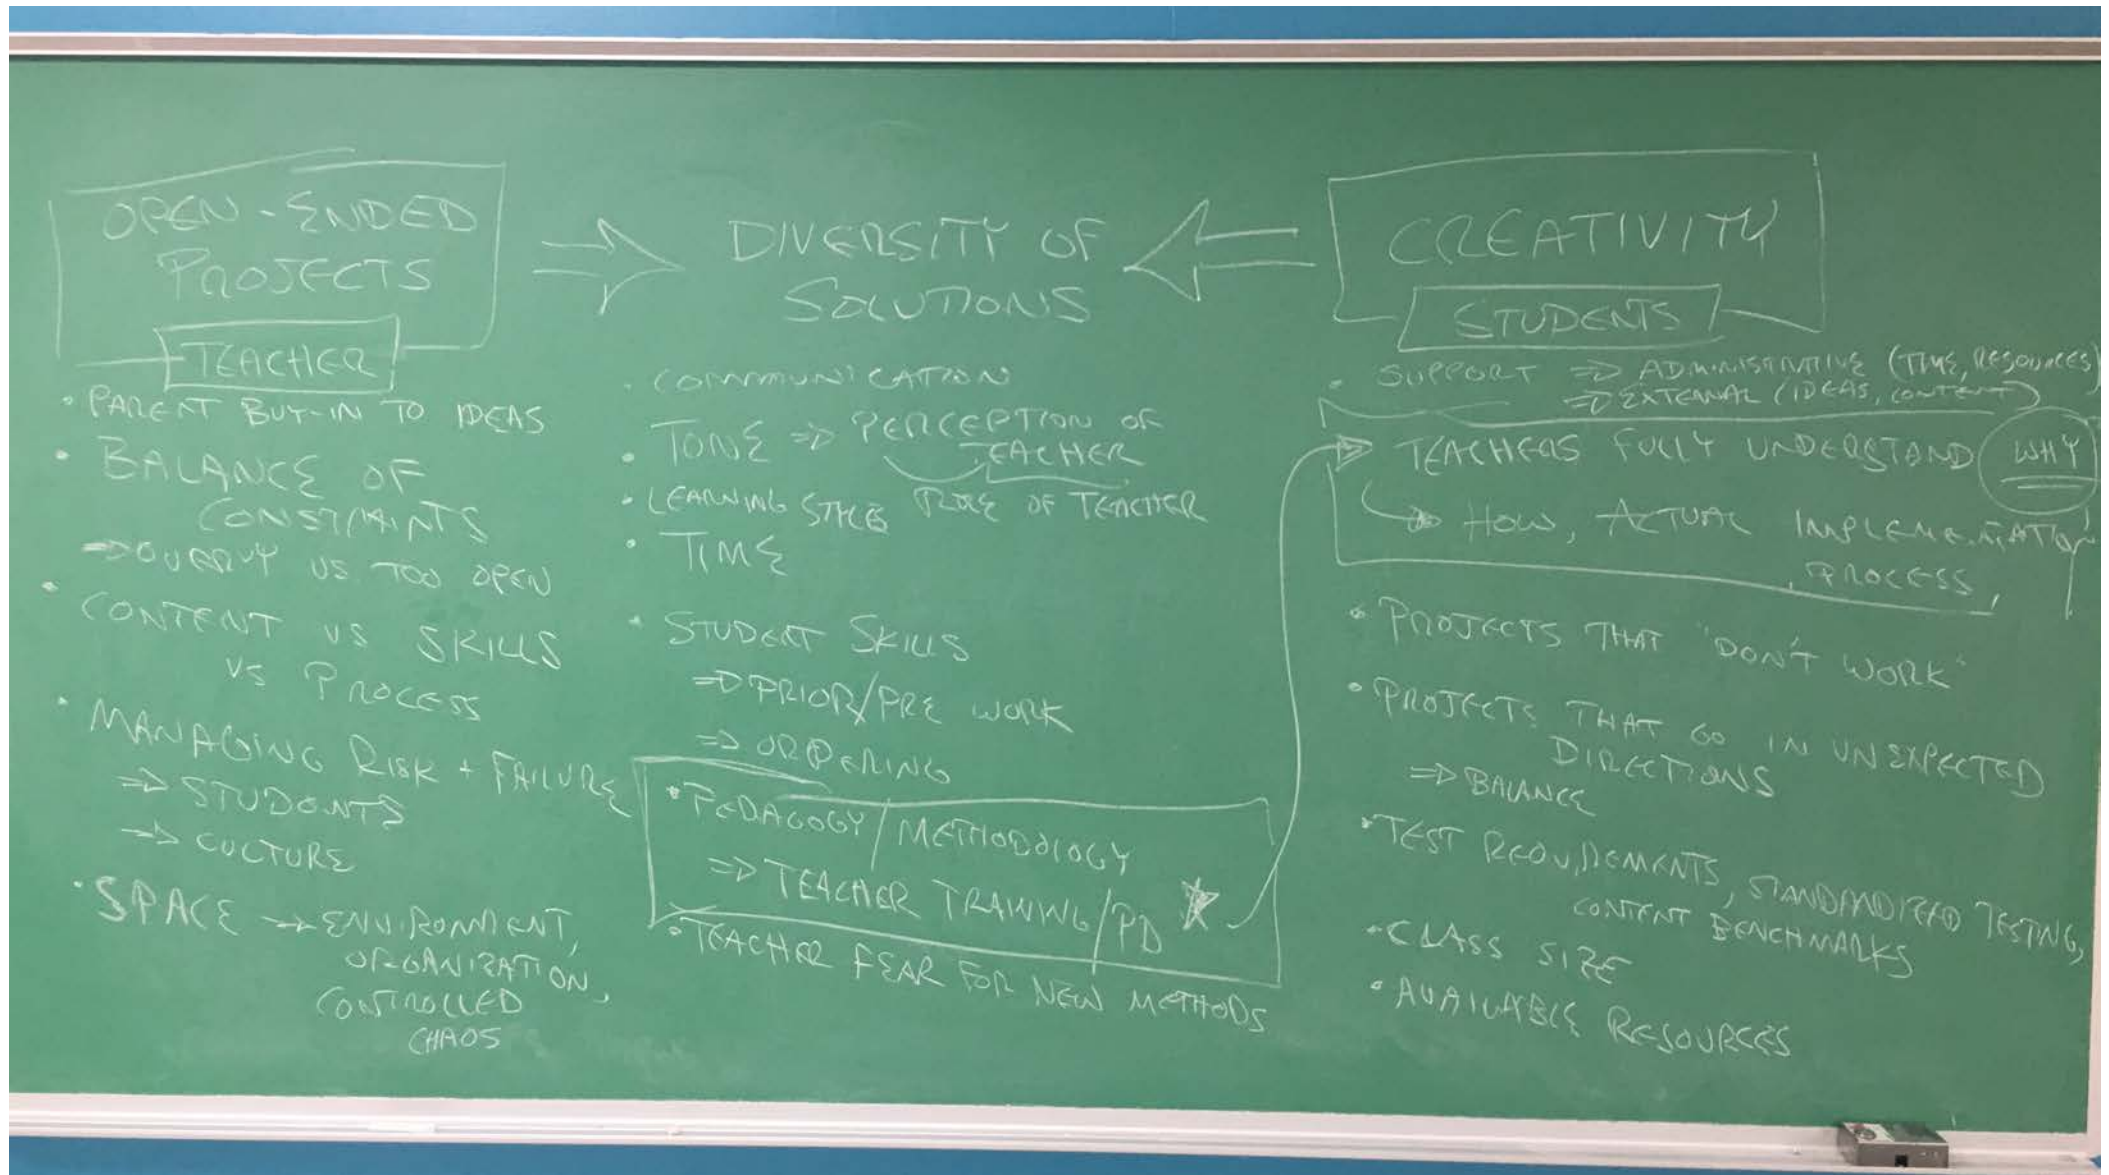 OPEN-ENDED
PROJECTS
TEACHER
• PARENT BUY-IN TO IDEAS
• BALANCE OF
CONSTRAINTS
⇒ OVERLY VS TOO OPEN
• CONTENT VS SKILLS
VS PROCESS
• MANAGING RISK + FAILURE
⇒ STUDENTS
⇒ CULTURE
• SPACE → ENVIRONMENT,
ORGANIZATION,
CONTROLLED
CHAOS
DIVERSITY OF
SOLUTIONS
• COMMUNICATION
• TONE ⇒ PERCEPTION OF
TEACHER
• LEARNING STYLES ROLE OF TEACHER
• TIME
• STUDENT SKILLS
⇒ PRIOR/PRE WORK
⇒ ORDERING
• PEDAGOGY/METHODOLOGY
⇒ TEACHER TRAINING/PD
• TEACHER FEAR FOR NEW METHODS
CREATIVITY
STUDENTS
• SUPPORT ⇒ ADMINISTRATIVE (TIME, RESOURCES)
⇒ EXTERNAL (IDEAS, CONTENT)
TEACHERS FULLY UNDERSTAND WHY
HOW, ACTUAL IMPLEMENTATION
PROCESS
• PROJECTS THAT "DON'T WORK"
• PROJECTS THAT GO IN UNEXPECTED
DIRECTIONS
⇒ BALANCE
• TEST REQUIREMENTS, STANDARDIZED TESTING,
CONTENT BENCHMARKS
• CLASS SIZE
• AVAILABLE RESOURCES